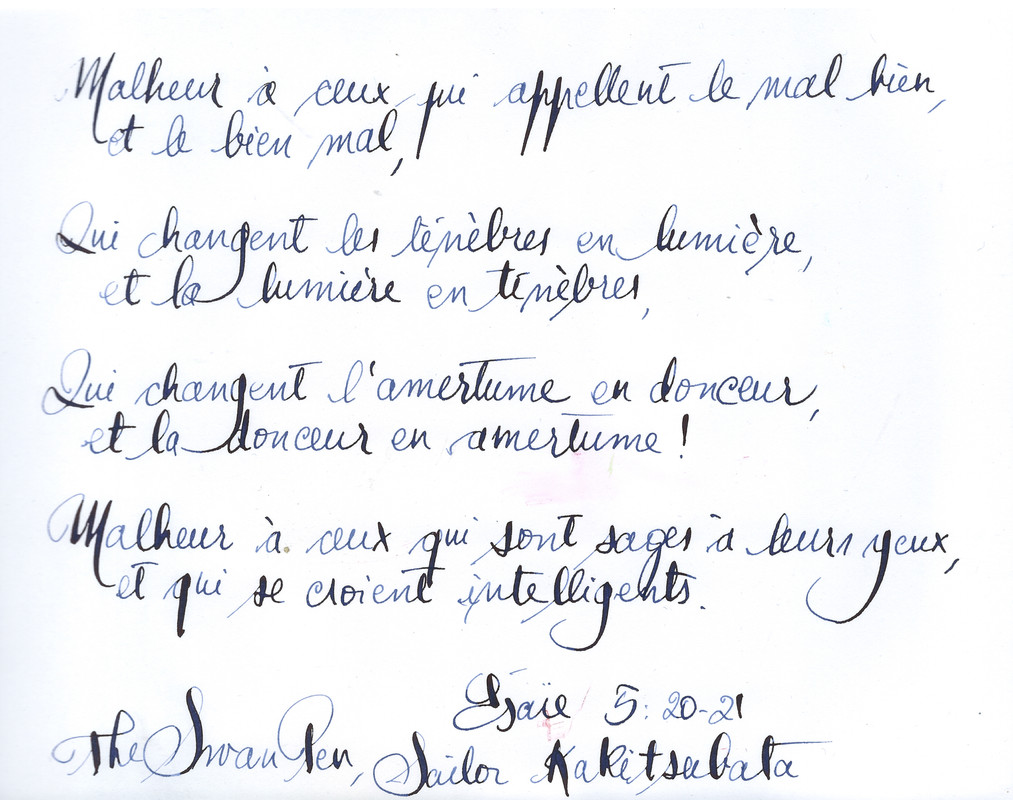 Malheur à ceux qui appellent le mal bien,
et le bien mal,
Qui changent les ténèbres en lumière,
et la lumière en ténèbres,
Qui changent l'amertume en douceur,
et la douceur en amertume !
Malheur à ceux qui sont sages à leurs yeux,
et qui se croient intelligents.
Esaïe 5: 20-21
The Swan Pen, Sailor Kakitsubata